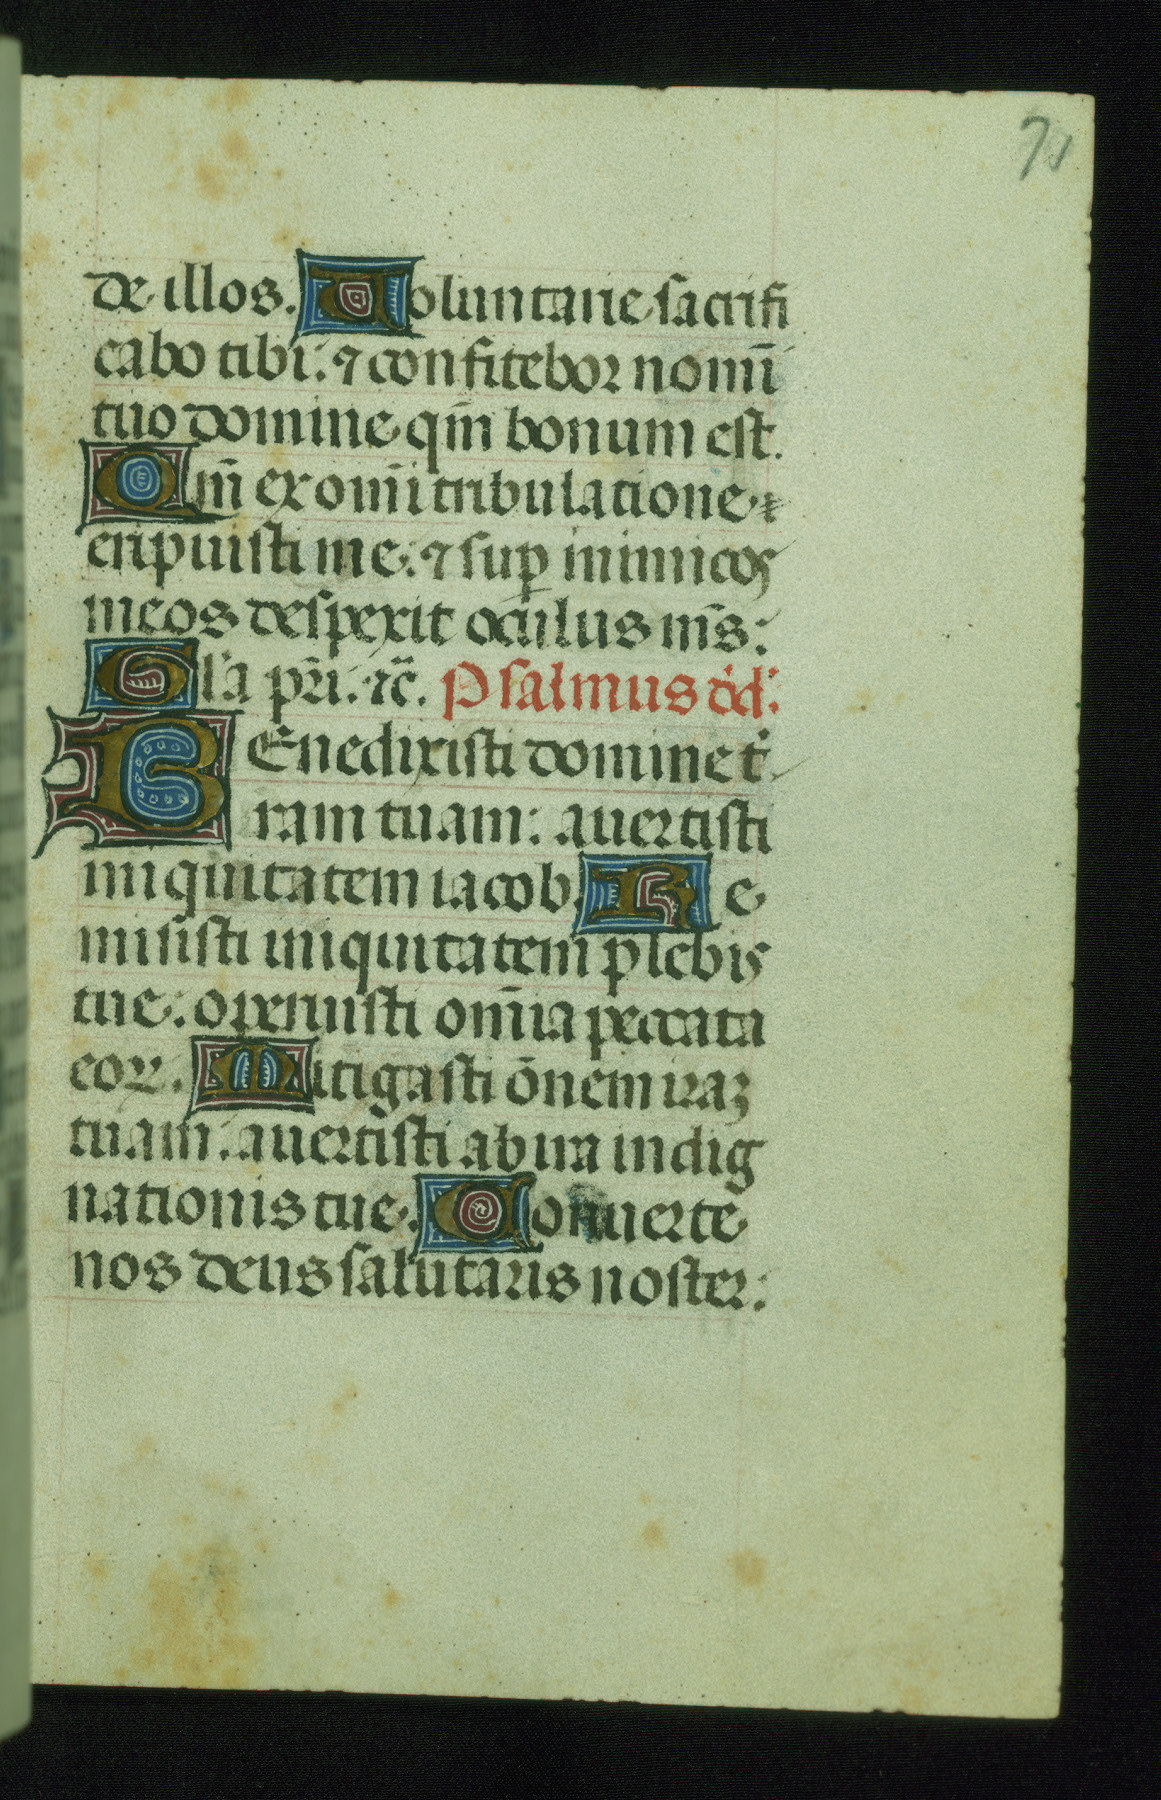 71
de illos. Voluntarie sacrifi
cabo tibi: ⁊ confitebor nomı̄
tuo domine qm̄ bonum est.
Qm̄ ex om̄i tribulatione
eripuisti me: ⁊ suꝑ inimicos
meos despexit oculus m̄s:
Gl'a pr̄i. ⁊c̄. Psalmus dd̄.
Benedixisti domine t'
ram tuam: auertisti
iniquitatem iacob. Re
misisti iniquitatem plebis
tue: operuisti om̄ia peccata
eoꝝ. Mitigasti ōnem iraꝫ
tuam: auertisti ab ira indig
nationis tue. Conuerte
nos deus salutaris noster: